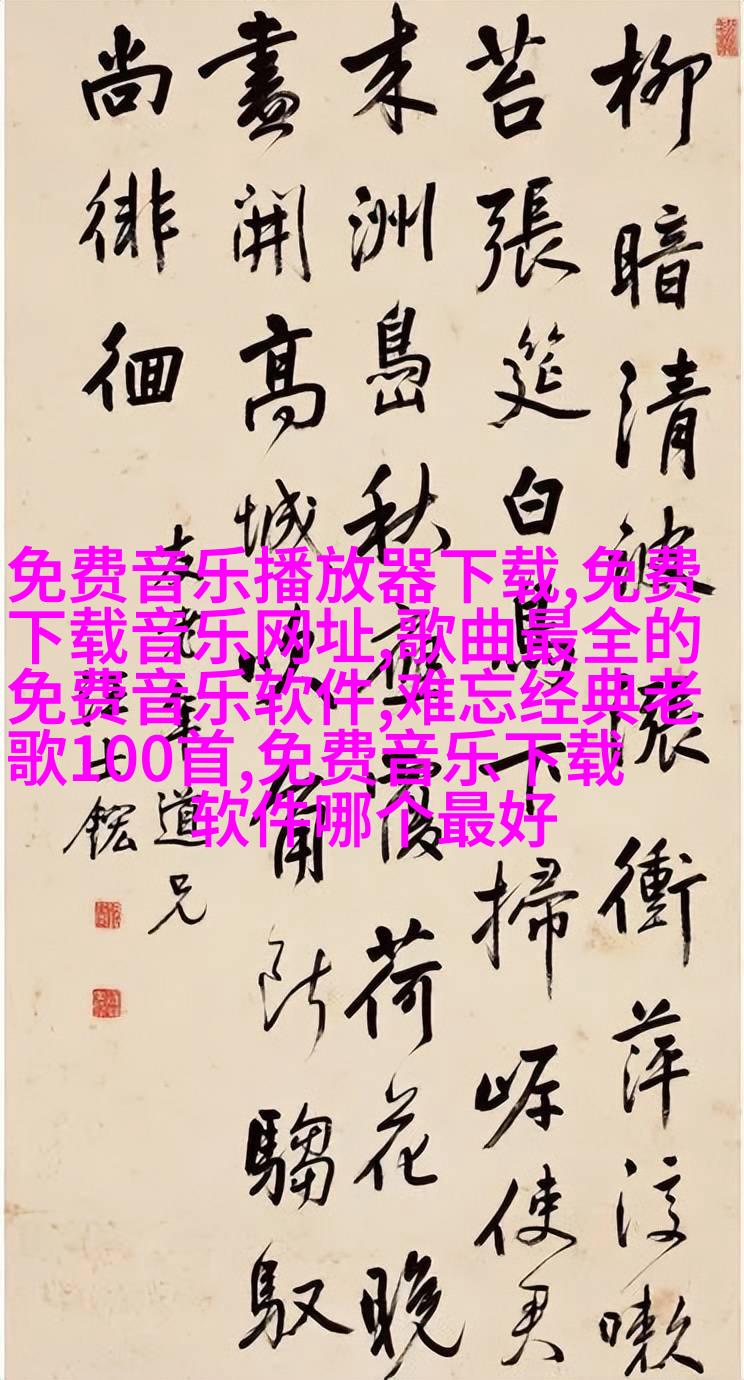 柳暗清波漲衝萍復嗽
苔張筵白鳥下掃岸使君
来洲島秋應覆荷花晚
盡開高城吹角斷騶馭
尚徘徊
老年道兄
汪士鋐
免费音乐播放器下载,免费
下载音乐网址,歌曲最全的
免费音乐软件,难忘经典老
歌100首,免费音乐下载
软件哪个最好